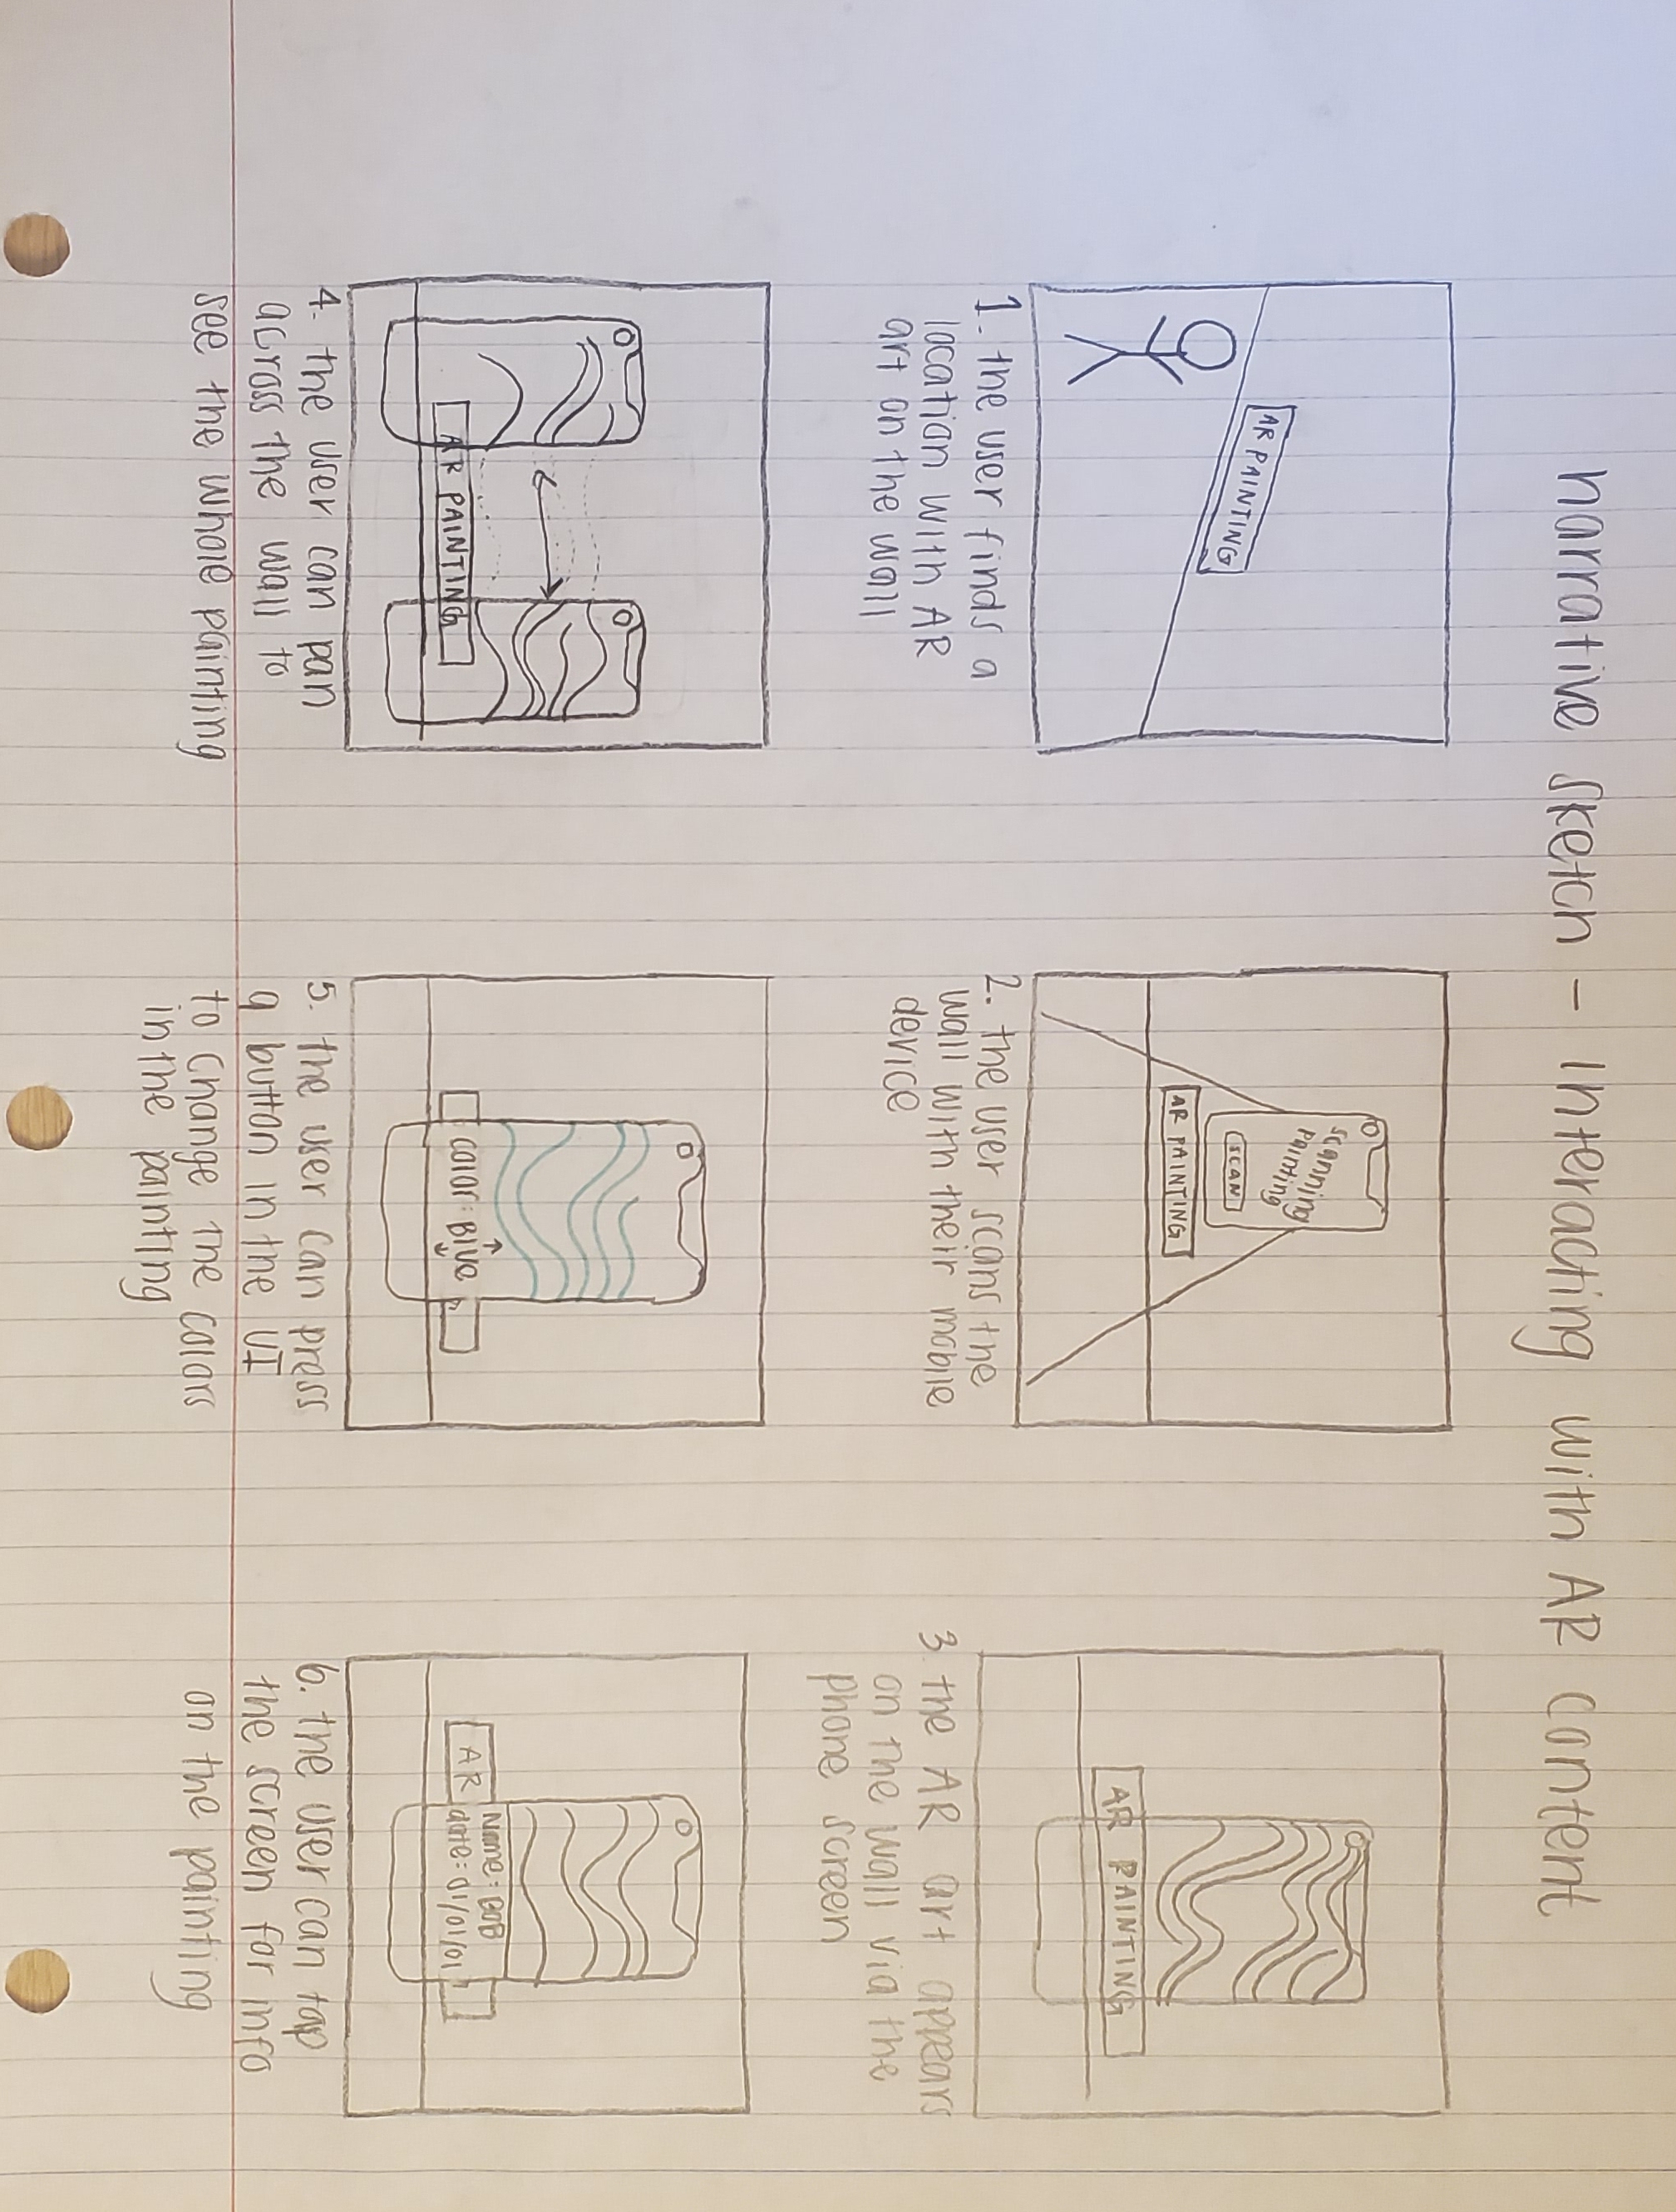 narrative sketch - Interacting with AR content
AR PAINTING
1. the user finds a
location with AR
art on the wall
scanning
painting
SCAN
AR PAINTING
2. the user scans the
wall with their mobile
device
AR PAINTING
3. the AR art appears
on the wall via the
phone screen
AR PAINTING
4. the user can pan
across the wall to
see the whole painting
color: Blue
5. the user can press
a button in the UI
to change the colors
in the painting
AR
Name: BOB
date: 01/01/01
6. the user can tap
the screen for info
on the painting